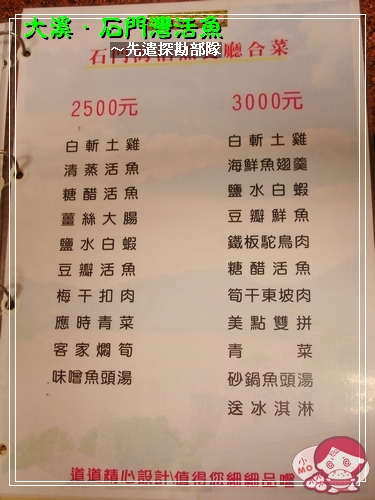 大溪．石門灣活魚
～先遣探勘部隊
石門 廳合菜
2500元
白斬土雞
清蒸活魚
糖醋活魚
薑絲大腸
鹽水白蝦
豆瓣活魚
梅干扣肉
應時青菜
客家燜筍
味噌魚頭湯
3000元
白斬土雞
海鮮魚翅羹
鹽水白蝦
豆瓣鮮魚
鐵板駝鳥肉
糖醋活魚
筍干東坡肉
美點雙拼
青菜
砂鍋魚頭湯
送冰淇淋
道道精心設計\值得您細細品嚐
小MO